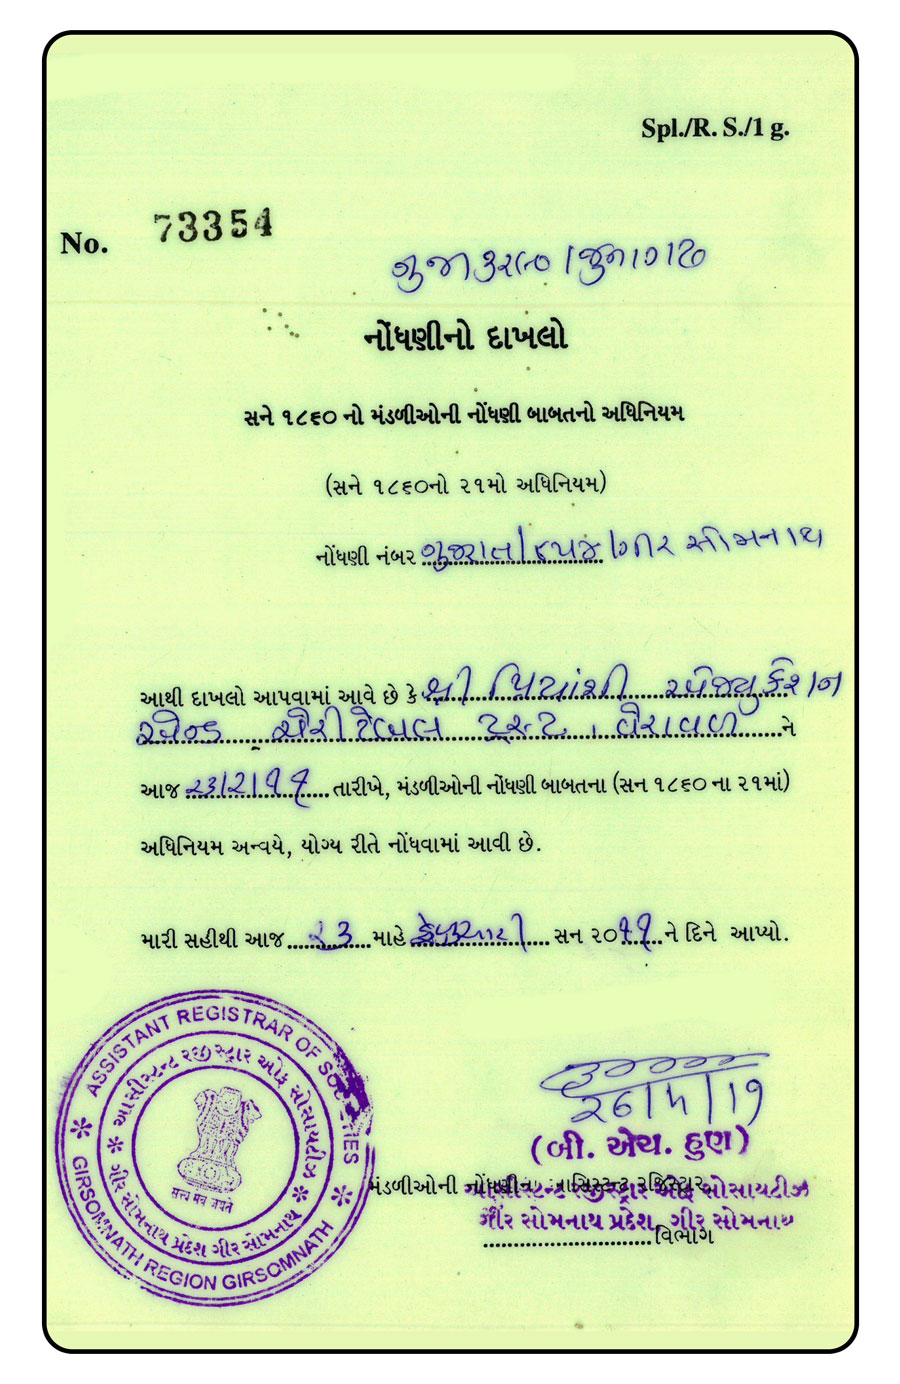 Spl./R. S./1 g.
No. 73354
નોંધણીનો દાખલો
સને ૧૮૬૦ નો મંડળીઓની નોંધણી બાબતનો અધિનિયમ
(સને ૧૮૬૦નો ૨૧મો અધિનિયમ)
નોંધણી નંબર ગુજરાત/ ગીર સોમનાથ
આથી દાખલો આપવામાં આવે છે કે શ્રી પ્રિયાંશી એજ્યુકેશન
એન્ડ ચેરીટેબલ ટ્રસ્ટ, વેરાવળ ને
આજ ૨૩/૨/૧૧ તારીખે, મંડળીઓની નોંધણી બાબતના (સન ૧૮૬૦ ના ૨૧માં)
અધિનિયમ અન્વયે, યોગ્ય રીતે નોંધવામાં આવી છે.
મારી સહીથી આજ ૨૩ માહે ફેબ્રુઆરી સન ૨૦૧૧ ને દિને આપ્યો.
ASSISTANT REGISTRAR OF SOCIETIES
GIRSOMNATH REGION GIRSOMNATH
આસીસ્ટન્ટ રજીસ્ટ્રાર ઓફ સોસાયટીઝ
ગીર સોમનાથ પ્રદેશ ગીર સોમનાથ
सत्यमेव जयते
(બી. એચ. હુણ)
મંડળીઓની નોંધણીના આસિસ્ટન્ટ રજિસ્ટ્રાર
આસીસ્ટન્ટ રજીસ્ટ્રાર ઓફ સોસાયટીઝ
ગીર સોમનાથ પ્રદેશ, ગીર સોમનાથ
વિભાગ